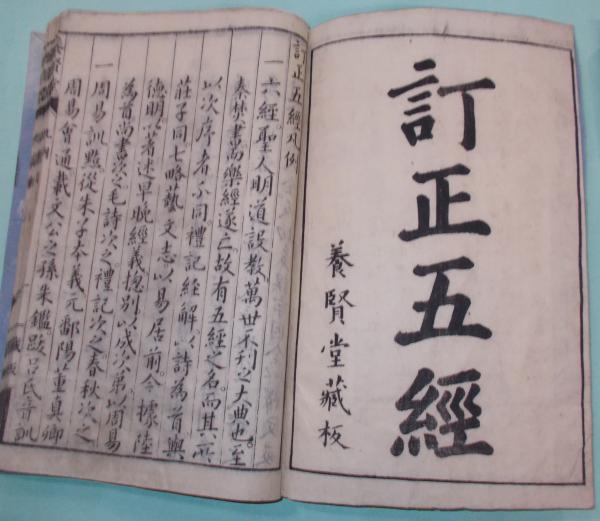 訂正五經
養賢堂藏板
訂正五經凡例
一六經聖人明道設教萬世不刊之大典也至
秦焚書而樂經遂亡故有五經之名而其所
以次序者不同禮記經解以詩為首與
莊子同七略藝文志以易居前今據陸
德明以著述早晚經義揔別以成次第以周易
為首尚書次之毛詩次之禮記次之春秋次之
一周易訓點從朱子本義元鄱陽董真卿
周易會通載文公之孫朱鑑跋呂氏音訓